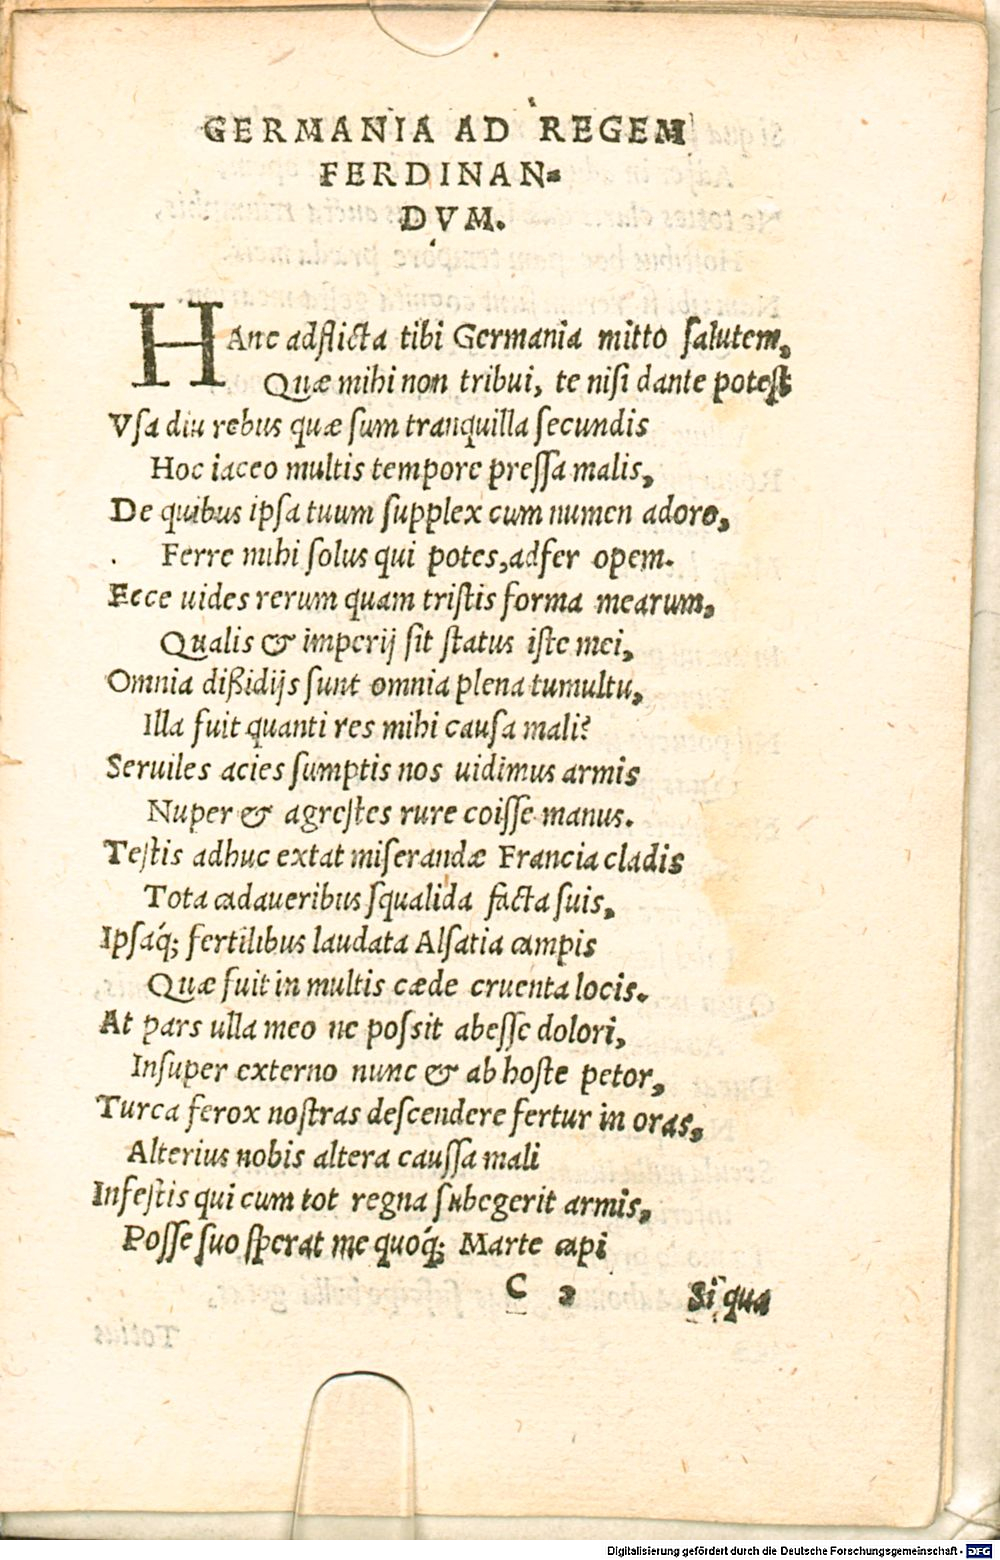 GERMANIA AD REGEM
FERDINAN-
DVM.
HAnc adflicta tibi Germania mitto ſalutem,
Quæ mihi non tribui, te niſi dante poteſt
Vſa diu rebus quæ ſum tranquilla ſecundis
Hoc iaceo multis tempore preſſa malis,
De quibus ipſa tuum ſupplex cum numen adoro,
Ferre mihi ſolus qui potes, adfer opem.
Ecce uides rerum quam triſtis forma mearum,
Qualis & imperij ſit ſtatus iſte mei,
Omnia dißidijs ſunt omnia plena tumultu,
Illa fuit quanti res mihi cauſa mali?
Seruiles acies ſumptis nos uidimus armis
Nuper & agreſtes rure coiſſe manus.
Teſtis adhuc extat miſerandæ Francia cladis
Tota cadaueribus ſqualida facta ſuis,
Ipſaq́; fertilibus laudata Alſatia campis
Quæ fuit in multis cæde cruenta locis.
At pars ulla meo ne poſsit abeſſe dolori,
Inſuper externo nunc & ab hoſte petor,
Turca ferox noſtras deſcendere fertur in oras,
Alterius nobis altera cauſſa mali
Infeſtis qui cum tot regna ſubegerit armis,
Poſſe ſuo ſperat me quoq́; Marte capi
C 2 Si qua
Totius
Digitalisierung gefördert durch die Deutsche Forschungsgemeinschaft - DFG